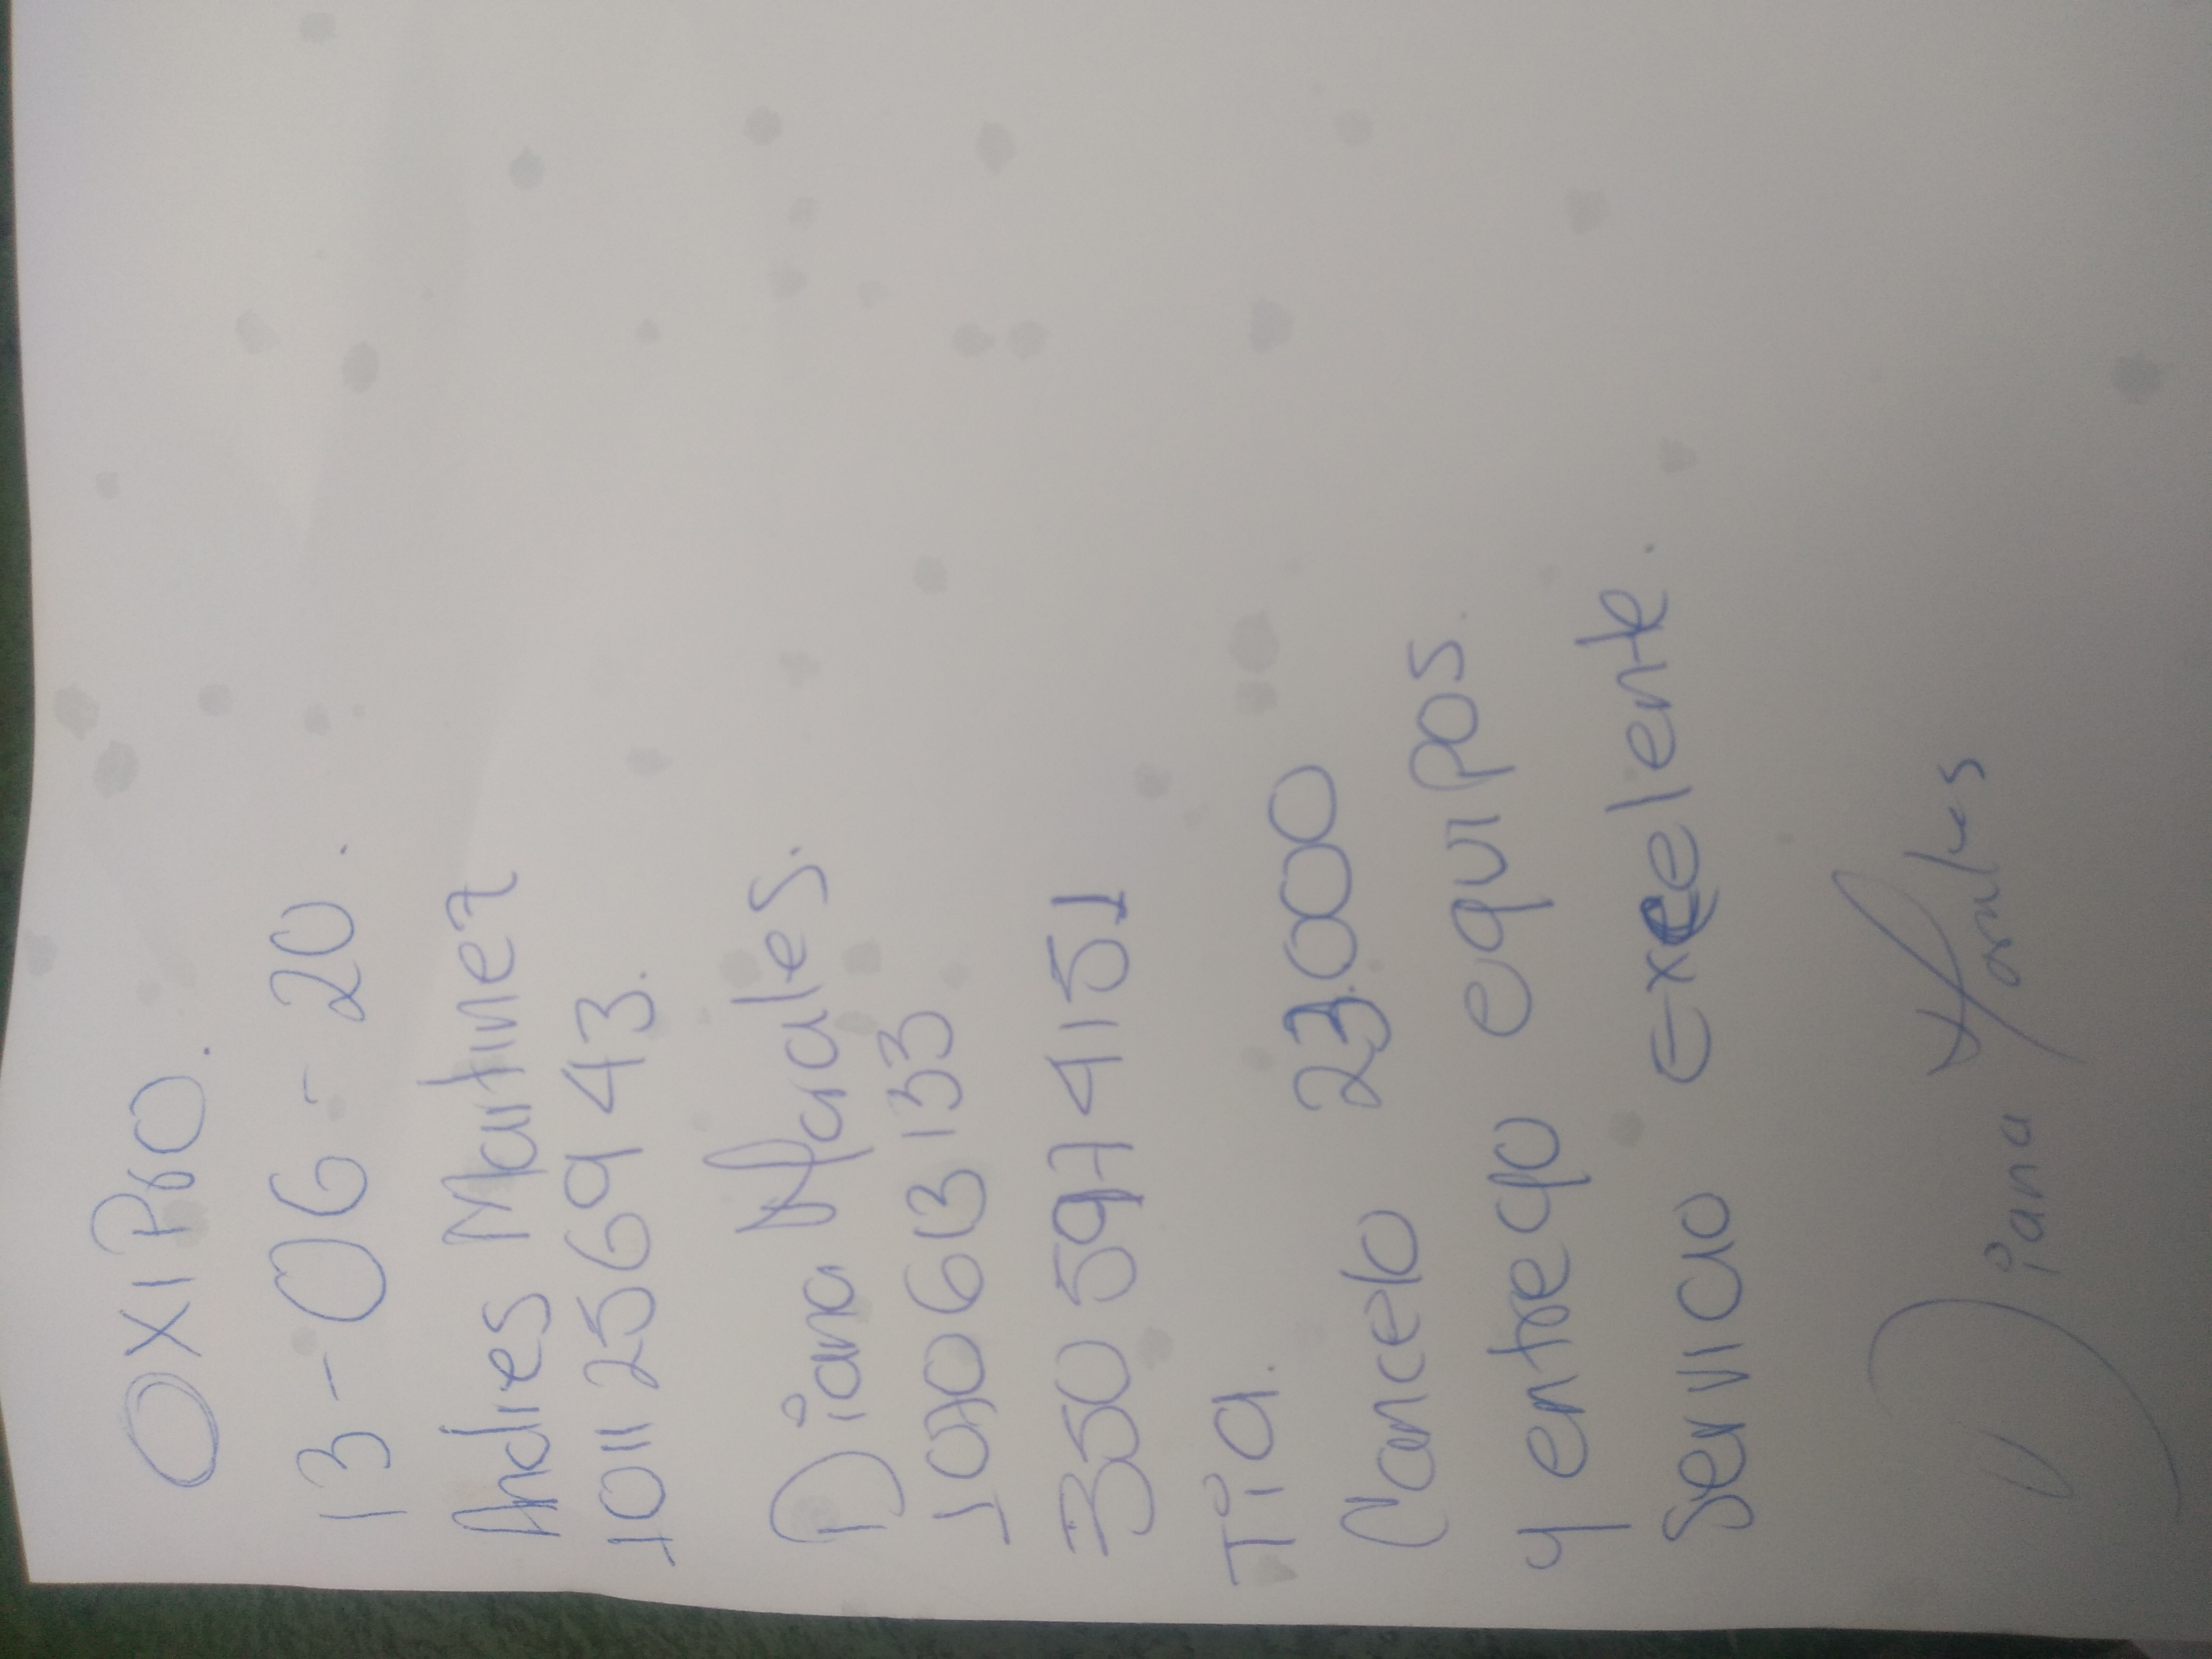 OXIPRO.
13-06-20.
Andres Martinez
1011 2569 43.
Diana Narales.
1070613133
350 597 4151
Tia.
Cancelo 23.000
y entrego equipos.
servicio exelente.
Diana Narales